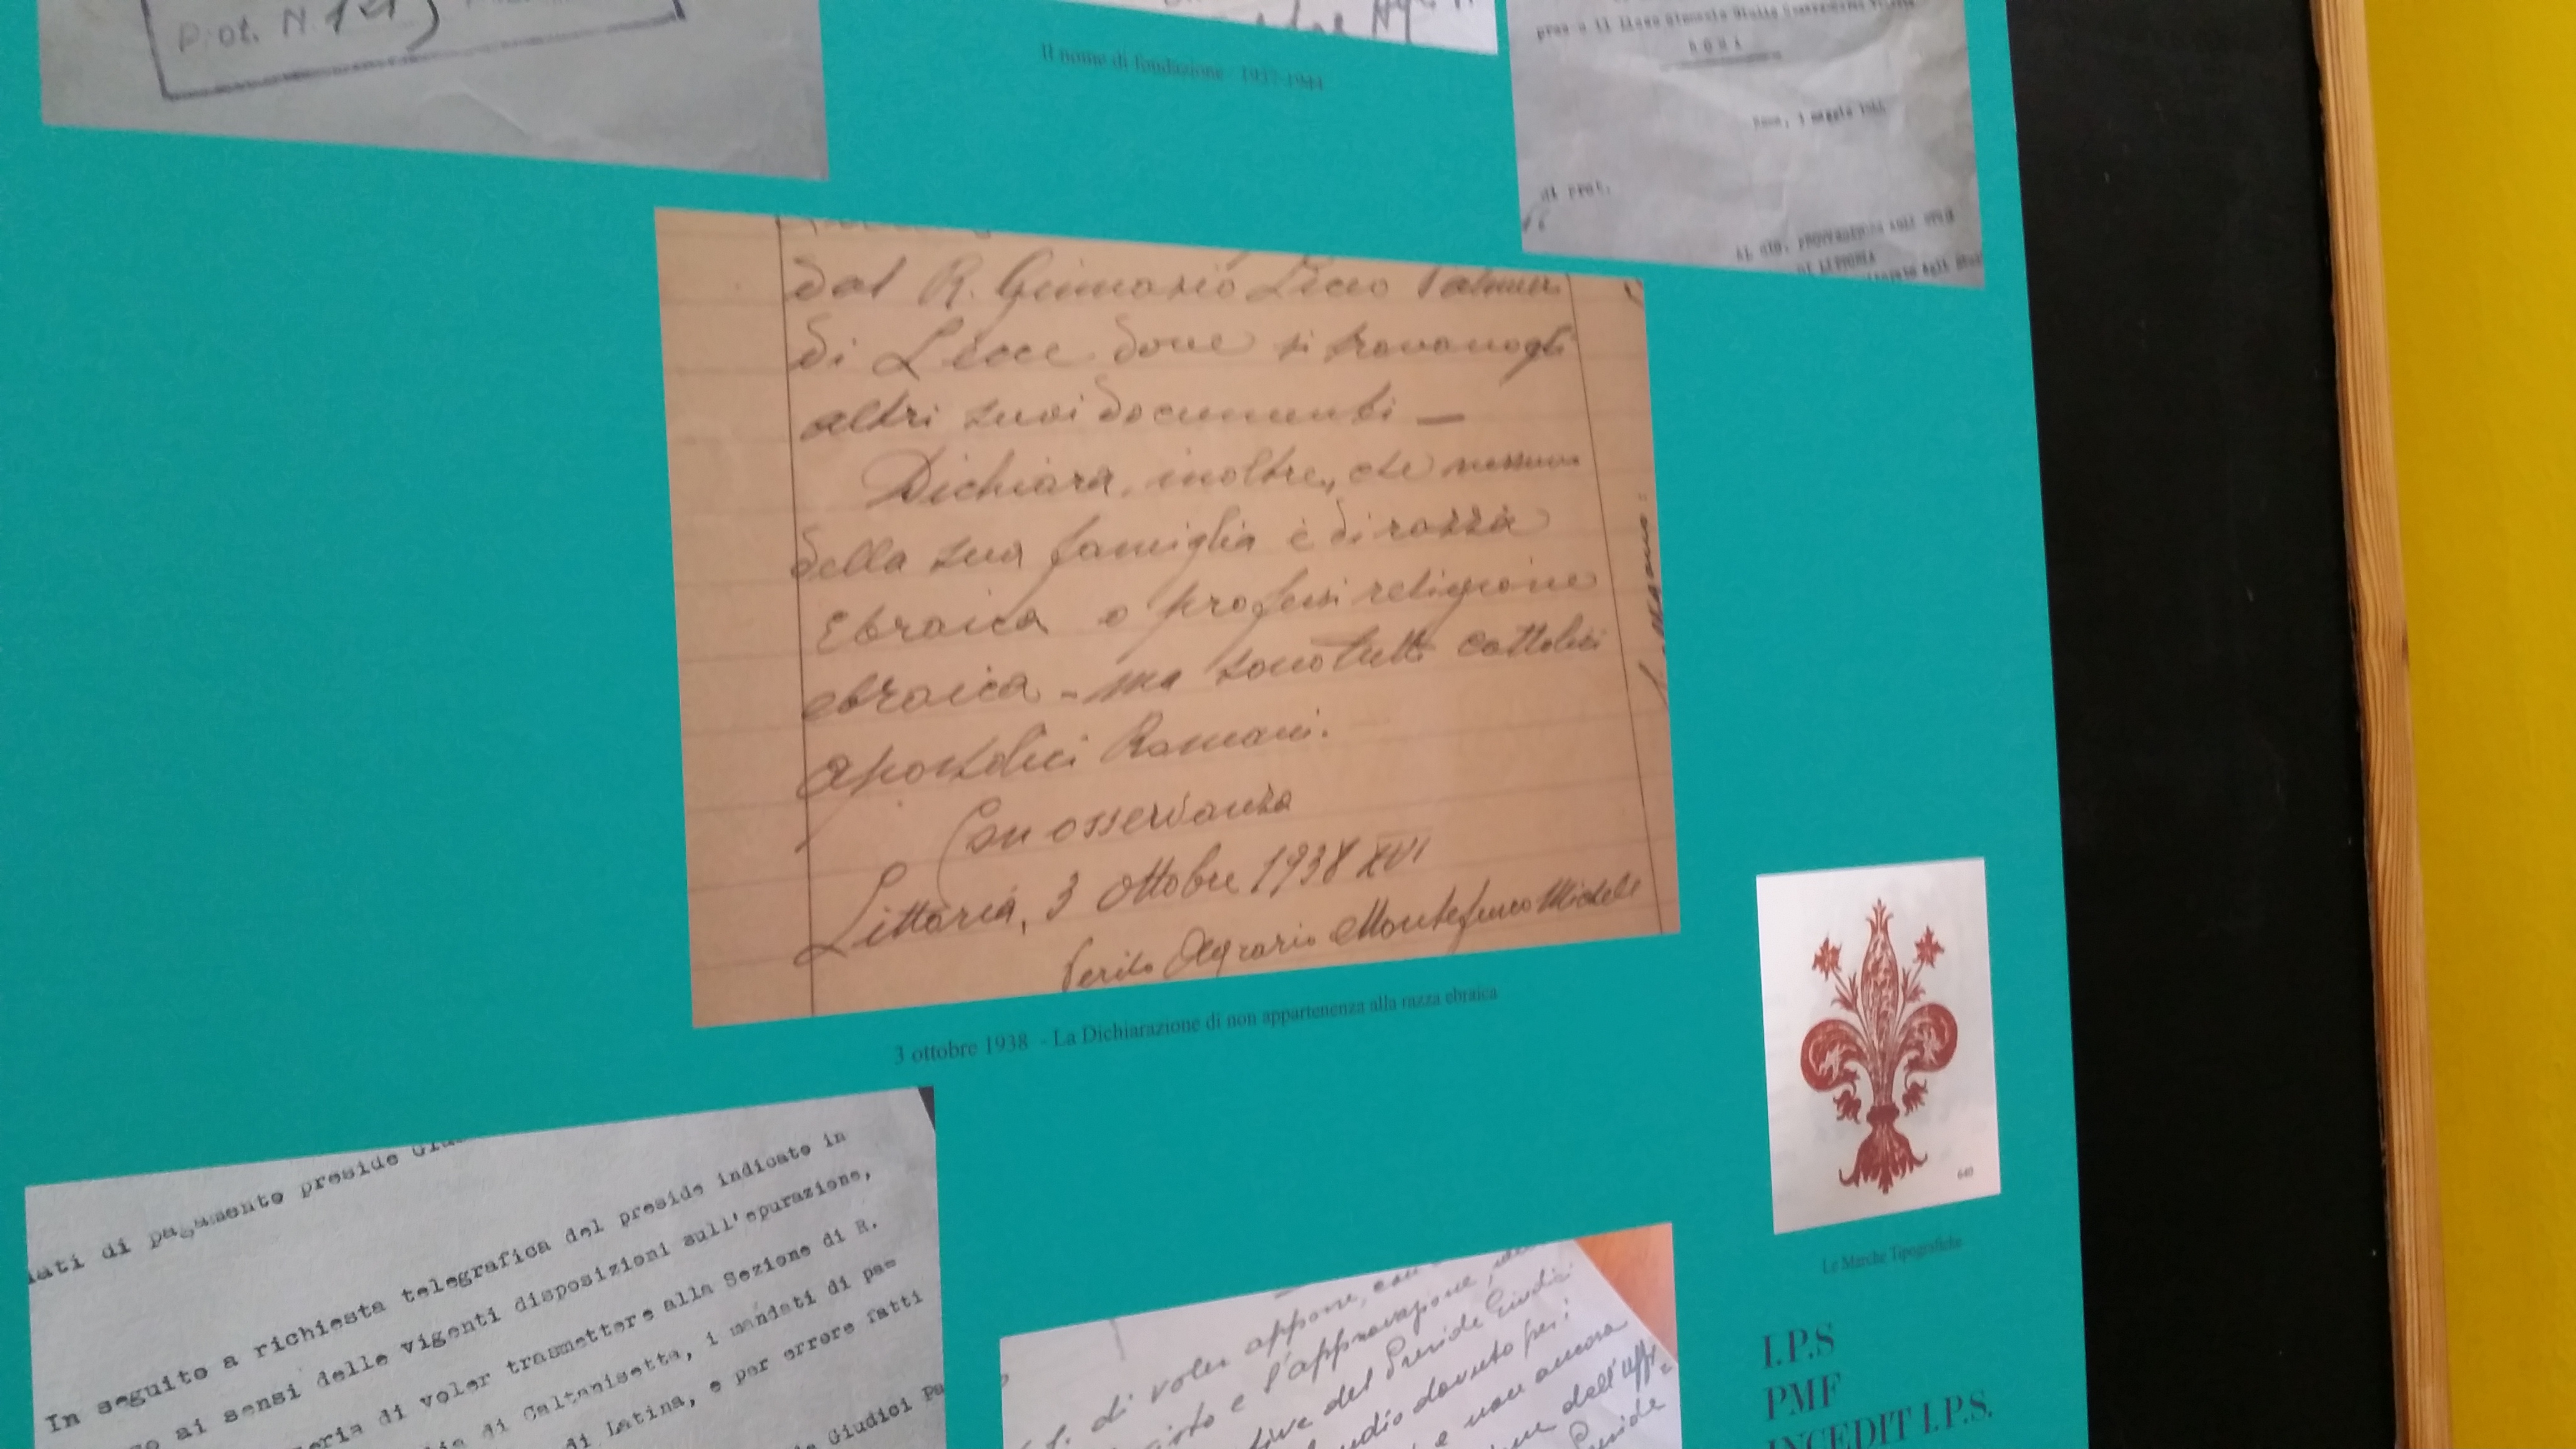 Prot. N.
Il nome di fondazione 1937-1944
Roma, 3 maggio
di prot.
dal R. Ginnasio Liceo Palmieri
di Lecce dove si trovano gli
altri suoi documenti —
Dichiara, inoltre, che nessuno
della sua famiglia è di razza
Ebraica o professi religione
ebraica - ma sono tutti cattolici
apostolici Romani.
Con osservanza
Littoria, 3 ottobre 1938 XVI
Perito Agrario Montefusco Michele
3 ottobre 1938 - La Dichiarazione di non appartenenza alla razza ebraica
640
Le Marche Tipografiche
I.P.S
PMF
INCEDIT I.P.S.
dati di pagamento preside
In seguito a richiesta telegrafica del preside indicato in
ai sensi delle vigenti disposizioni sull'epurazione,
di voler trasmettere alla Sezione di R.
di Caltanisetta, i mandati di pa=
di Latina, e per errore fatti
Giudici
di voler apporre, con
visto e l'approvazione,
del Preside Giudici
dovuto per:
e non ancora
dell'Uffi-
Preside